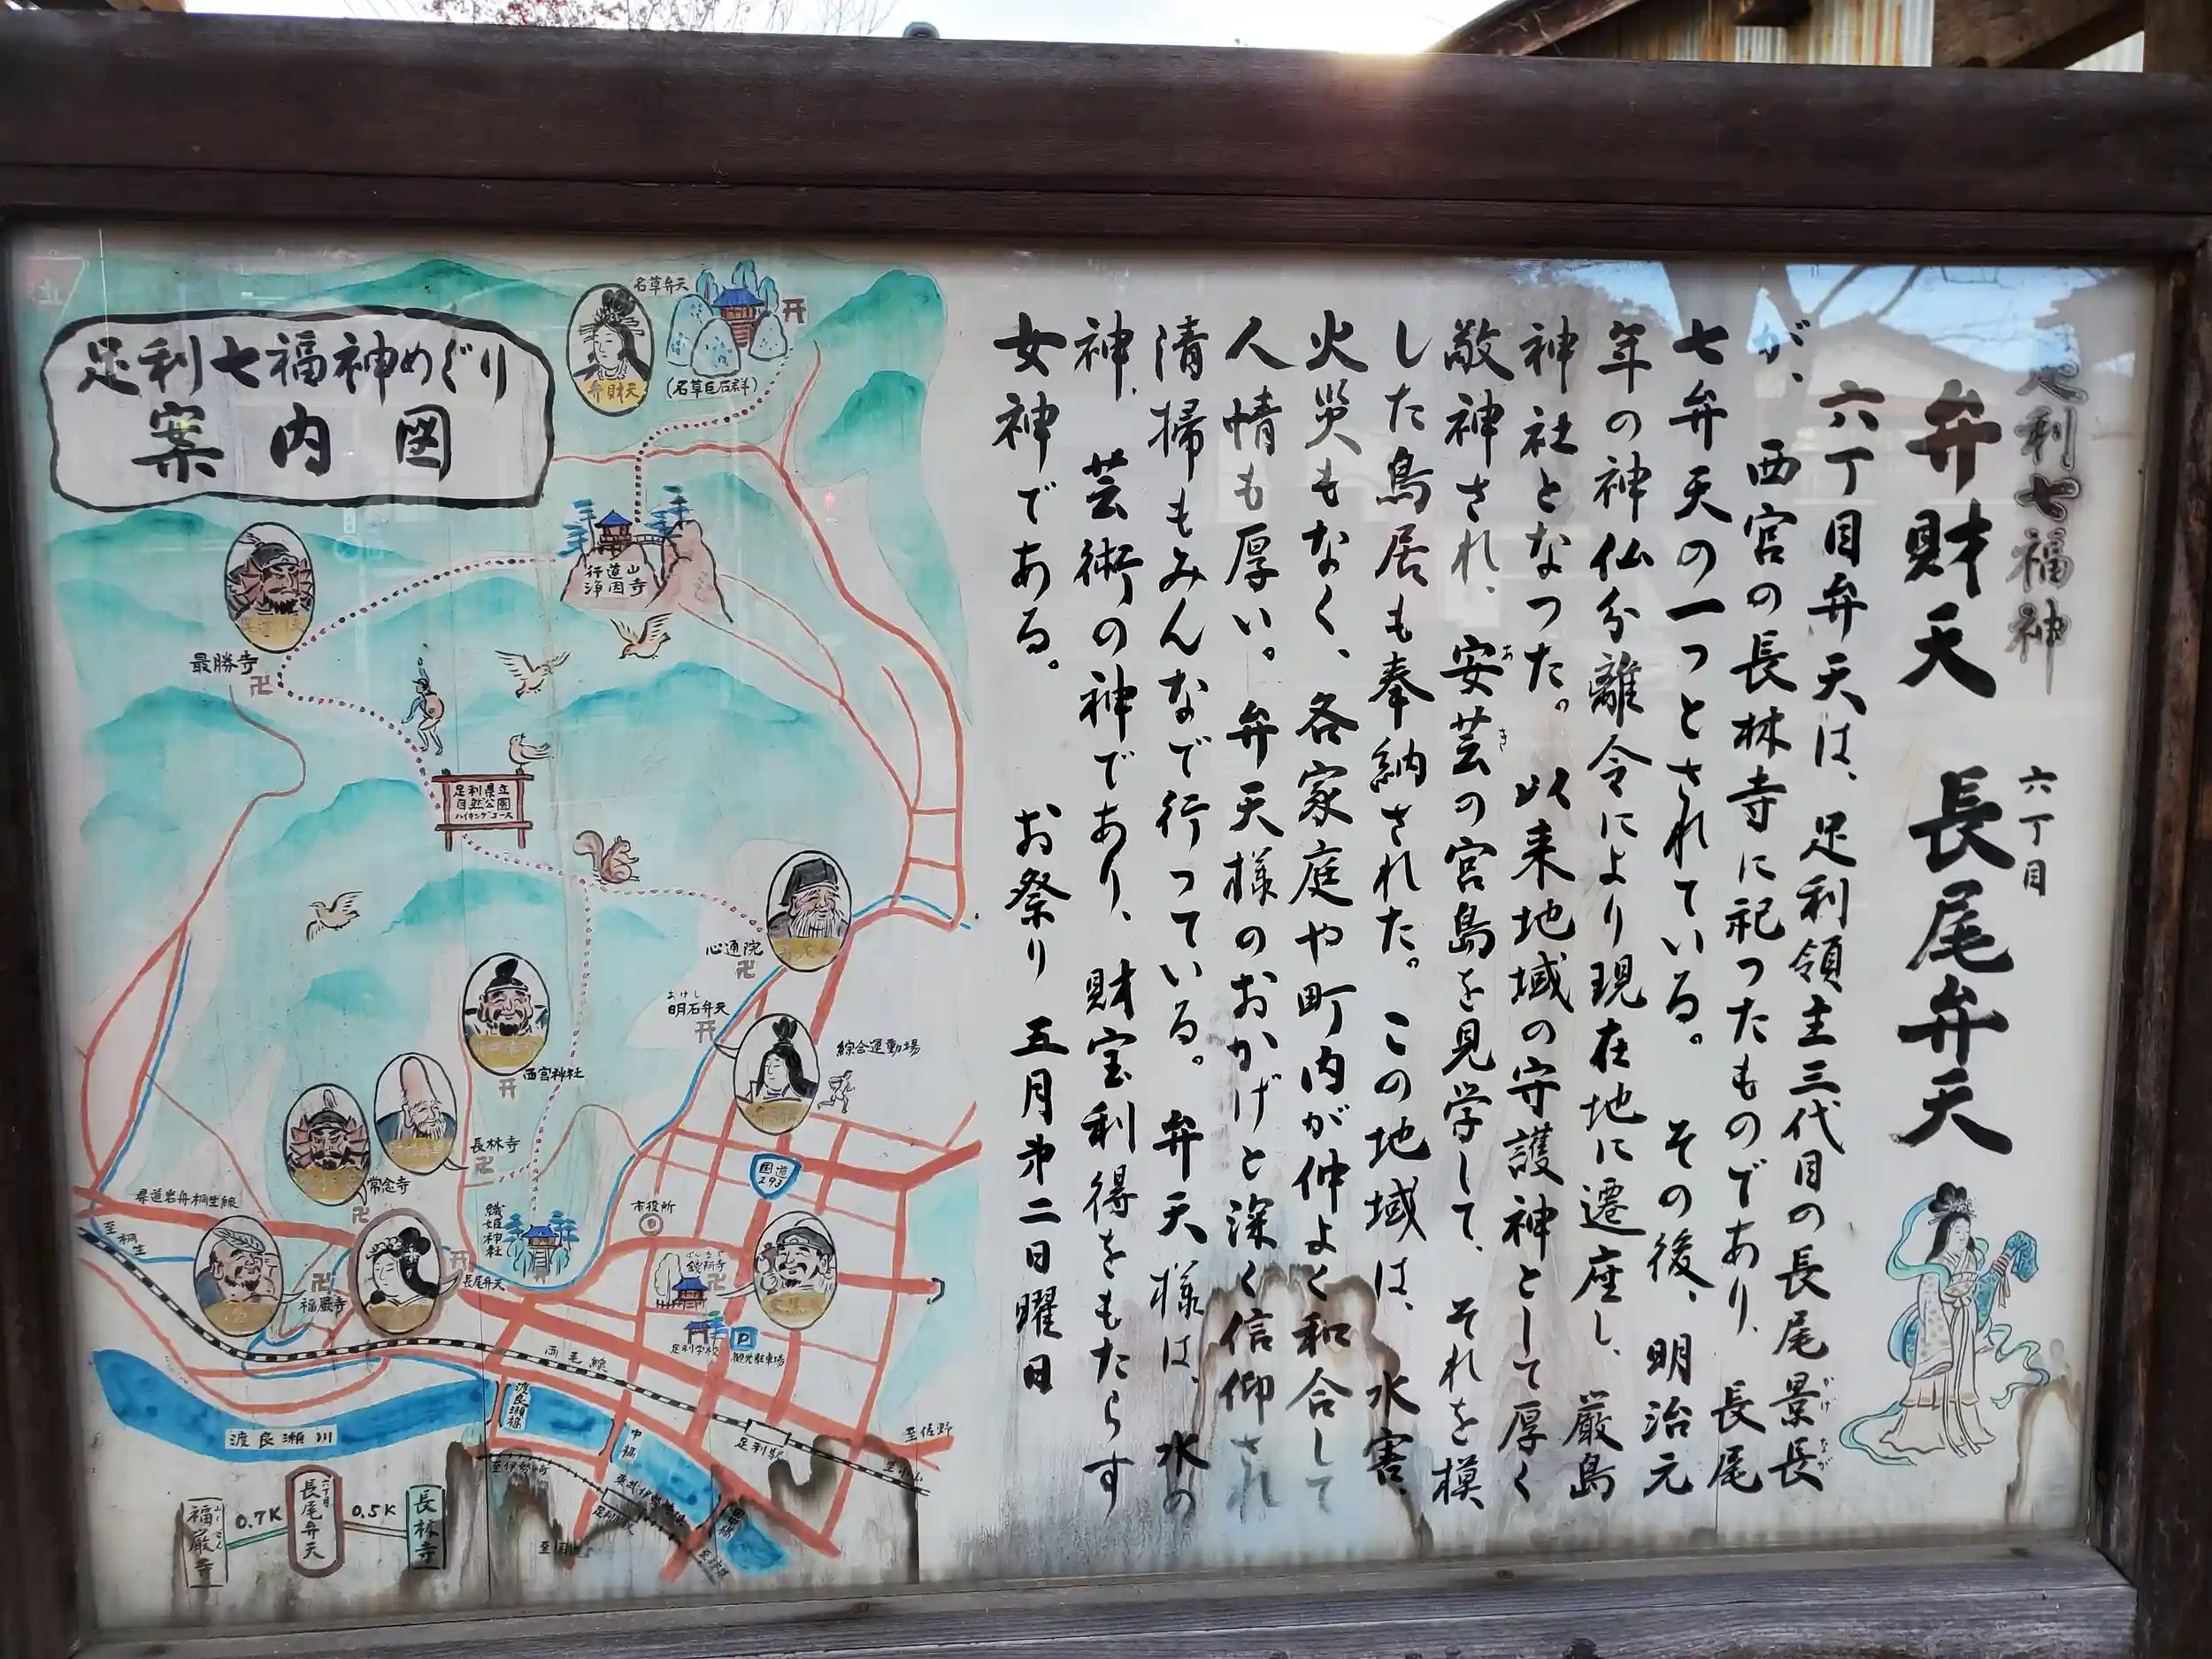 足利七福神
六丁目
弁財天 長尾弁天
六丁目弁天は、足利領主三代目の長尾景長
かげなが
が、西宮の長林寺に祀ったものであり、長尾
七弁天の一つとされている。その後、明治元
年の神仏分離令により現在地に遷座し、厳島
神社となった。以来地域の守護神として厚く
敬神され、安芸の宮島を見学して、それを模
あき
した鳥居も奉納された。この地域は、水害、
火災もなく、各家庭や町内が仲よく和合して
人情も厚い。弁天様のおかげと深く信仰され
清掃もみんなで行っている。弁天様は、水の
神、芸術の神であり、財宝利得をもたらす
女神である。 お祭り 五月第二日曜日
足利七福神めぐり
案内図
名草弁天
弁財天
(名草巨石群)
行道山
浄因寺
最勝寺
足利県立
自然公園
ハイキングコース
心通院
あけし
明石弁天
総合運動場
西宮神社
長林寺
常念寺
県道岩舟桐生線
至桐生
織姫神社
市役所
国道
293
ばんなじ
鑁阿寺
福厳寺
長尾弁天
足利学校
P
観光駐車場
両毛線
渡良瀬橋
中橋
渡良瀬川
足利駅
至佐野
至小山
至伊勢崎
福厳寺
0.7K
六丁目
長尾弁天
0.5K
長林寺